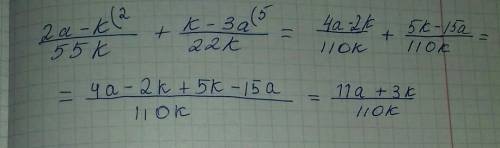 (2a-k^(2)/(55k) + (k-3a^(5)/(22k) = (4a-2k)/(110k) + (5k-15a)/(110k) =
= (4a-2k+5k-15a)/(110k) = (11a+3k)/(110k)